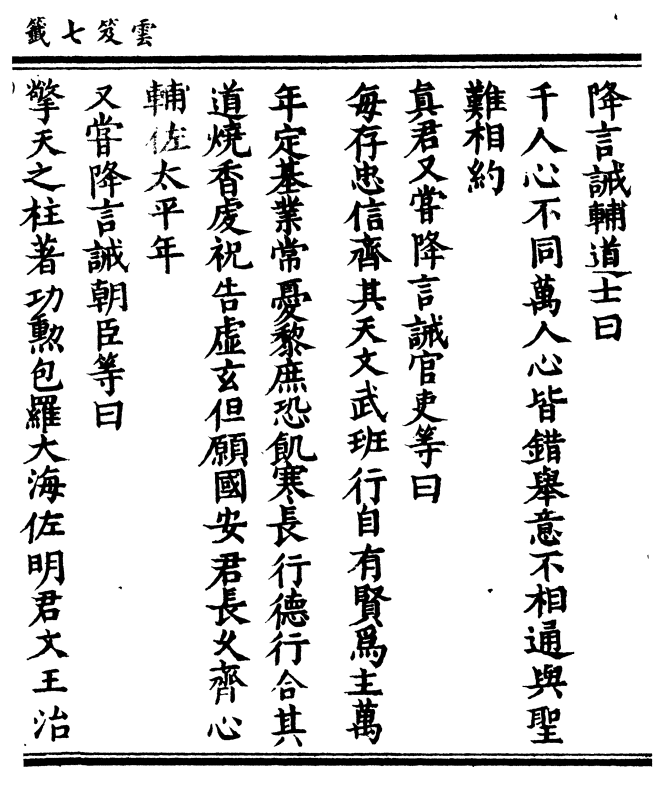 雲笈七籤
降言誡輔道士曰
千人心不同萬人心皆錯舉意不相通與聖
難相約
真君又嘗降言誡官吏等曰
每存忠信齊其天文武班行自有賢爲主萬
年定基業常憂黎庶恐飢寒長行德行合其
道燒香處祝告虛玄但願國安君長久齊心
輔佐太平年
又嘗降言誡朝臣等曰
擎天之柱著功勲包羅大海佐明君文王治